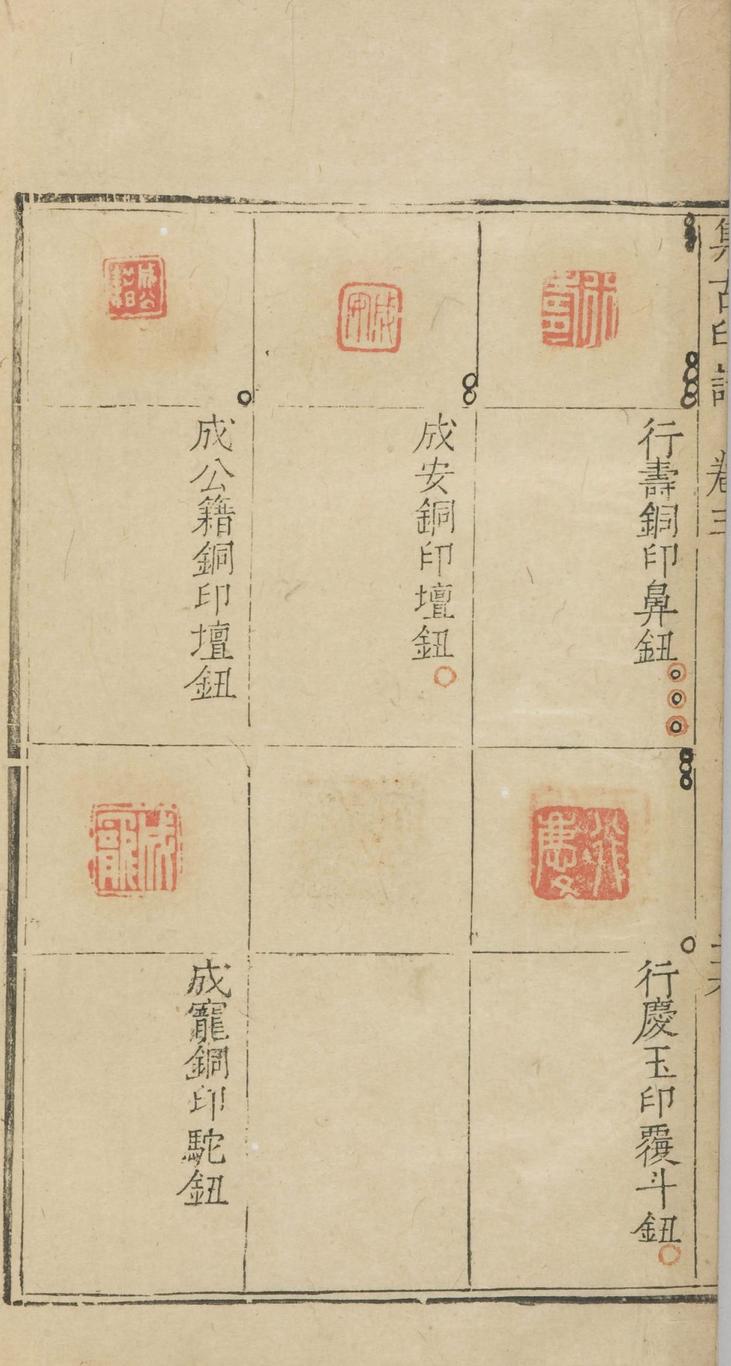 集古印譜 卷三
行壽銅印鼻鈕
行慶玉印覆斗鈕
成安銅印壇鈕
成公籍銅印壇鈕
成寵銅印駝鈕